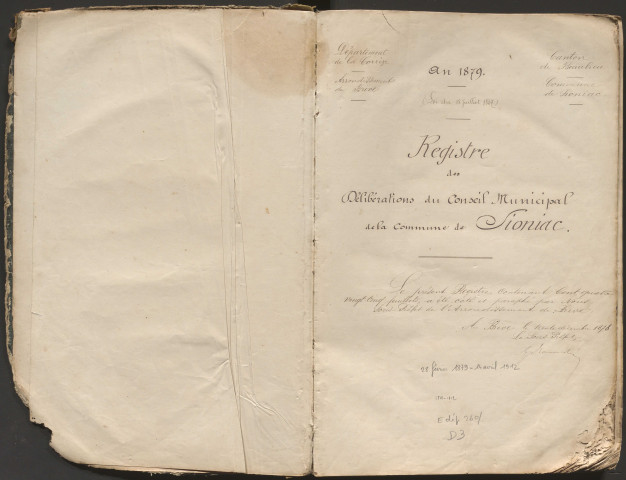 Département
de la Corrèze
Arrondissement
de Brive
An 1879.
Canton
de Beaulieu
Commune
de Sioniac
(Loi du 18 juillet 1837)
Registre
des
Délibérations du Conseil Municipal
de la Commune de Sioniac.
Le présent Registre contenant
vingt neuf feuillets, a été coté et paraphé par Nous,
Sous-Préfet de l'Arrondissement de Brive
A Brive, le décembre 1878
Le Sous Préfet,
1879 - avril 1912
E dép
D3